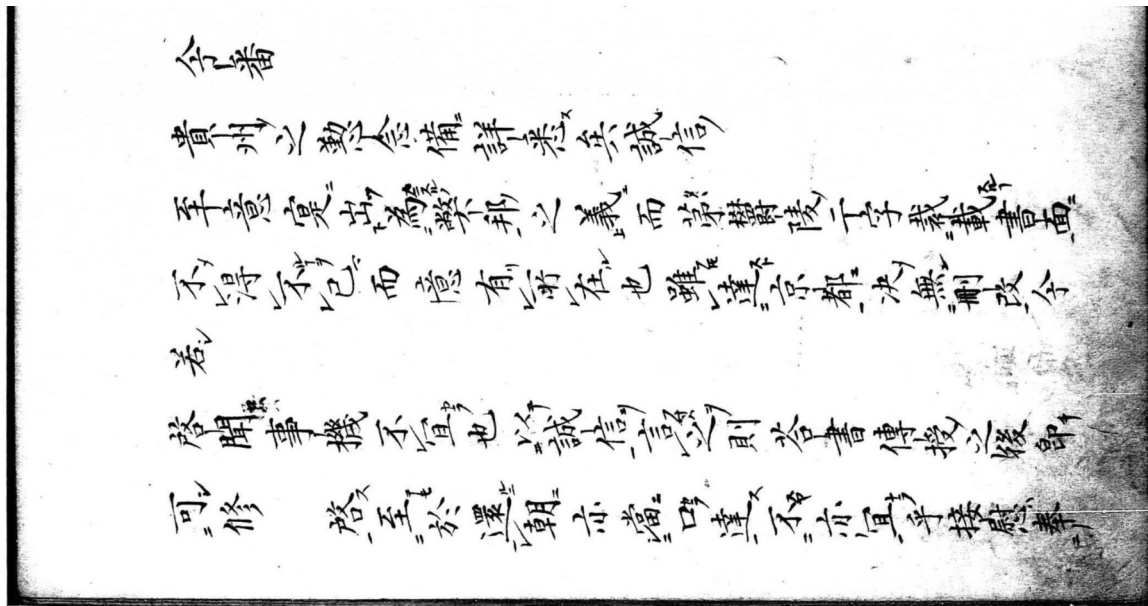 今番
貴州之勲念備詳悉共誠信
至意寔出為弊邦之義而蔚欝陵二字裁載書面
不得不已而意有所在也雖達京都決無刪改今
若
啓聞事機不宜也以誠信言之則答書傳授之後即
可修　啓至於還朝亦當口達不亦宜乎接慰奉